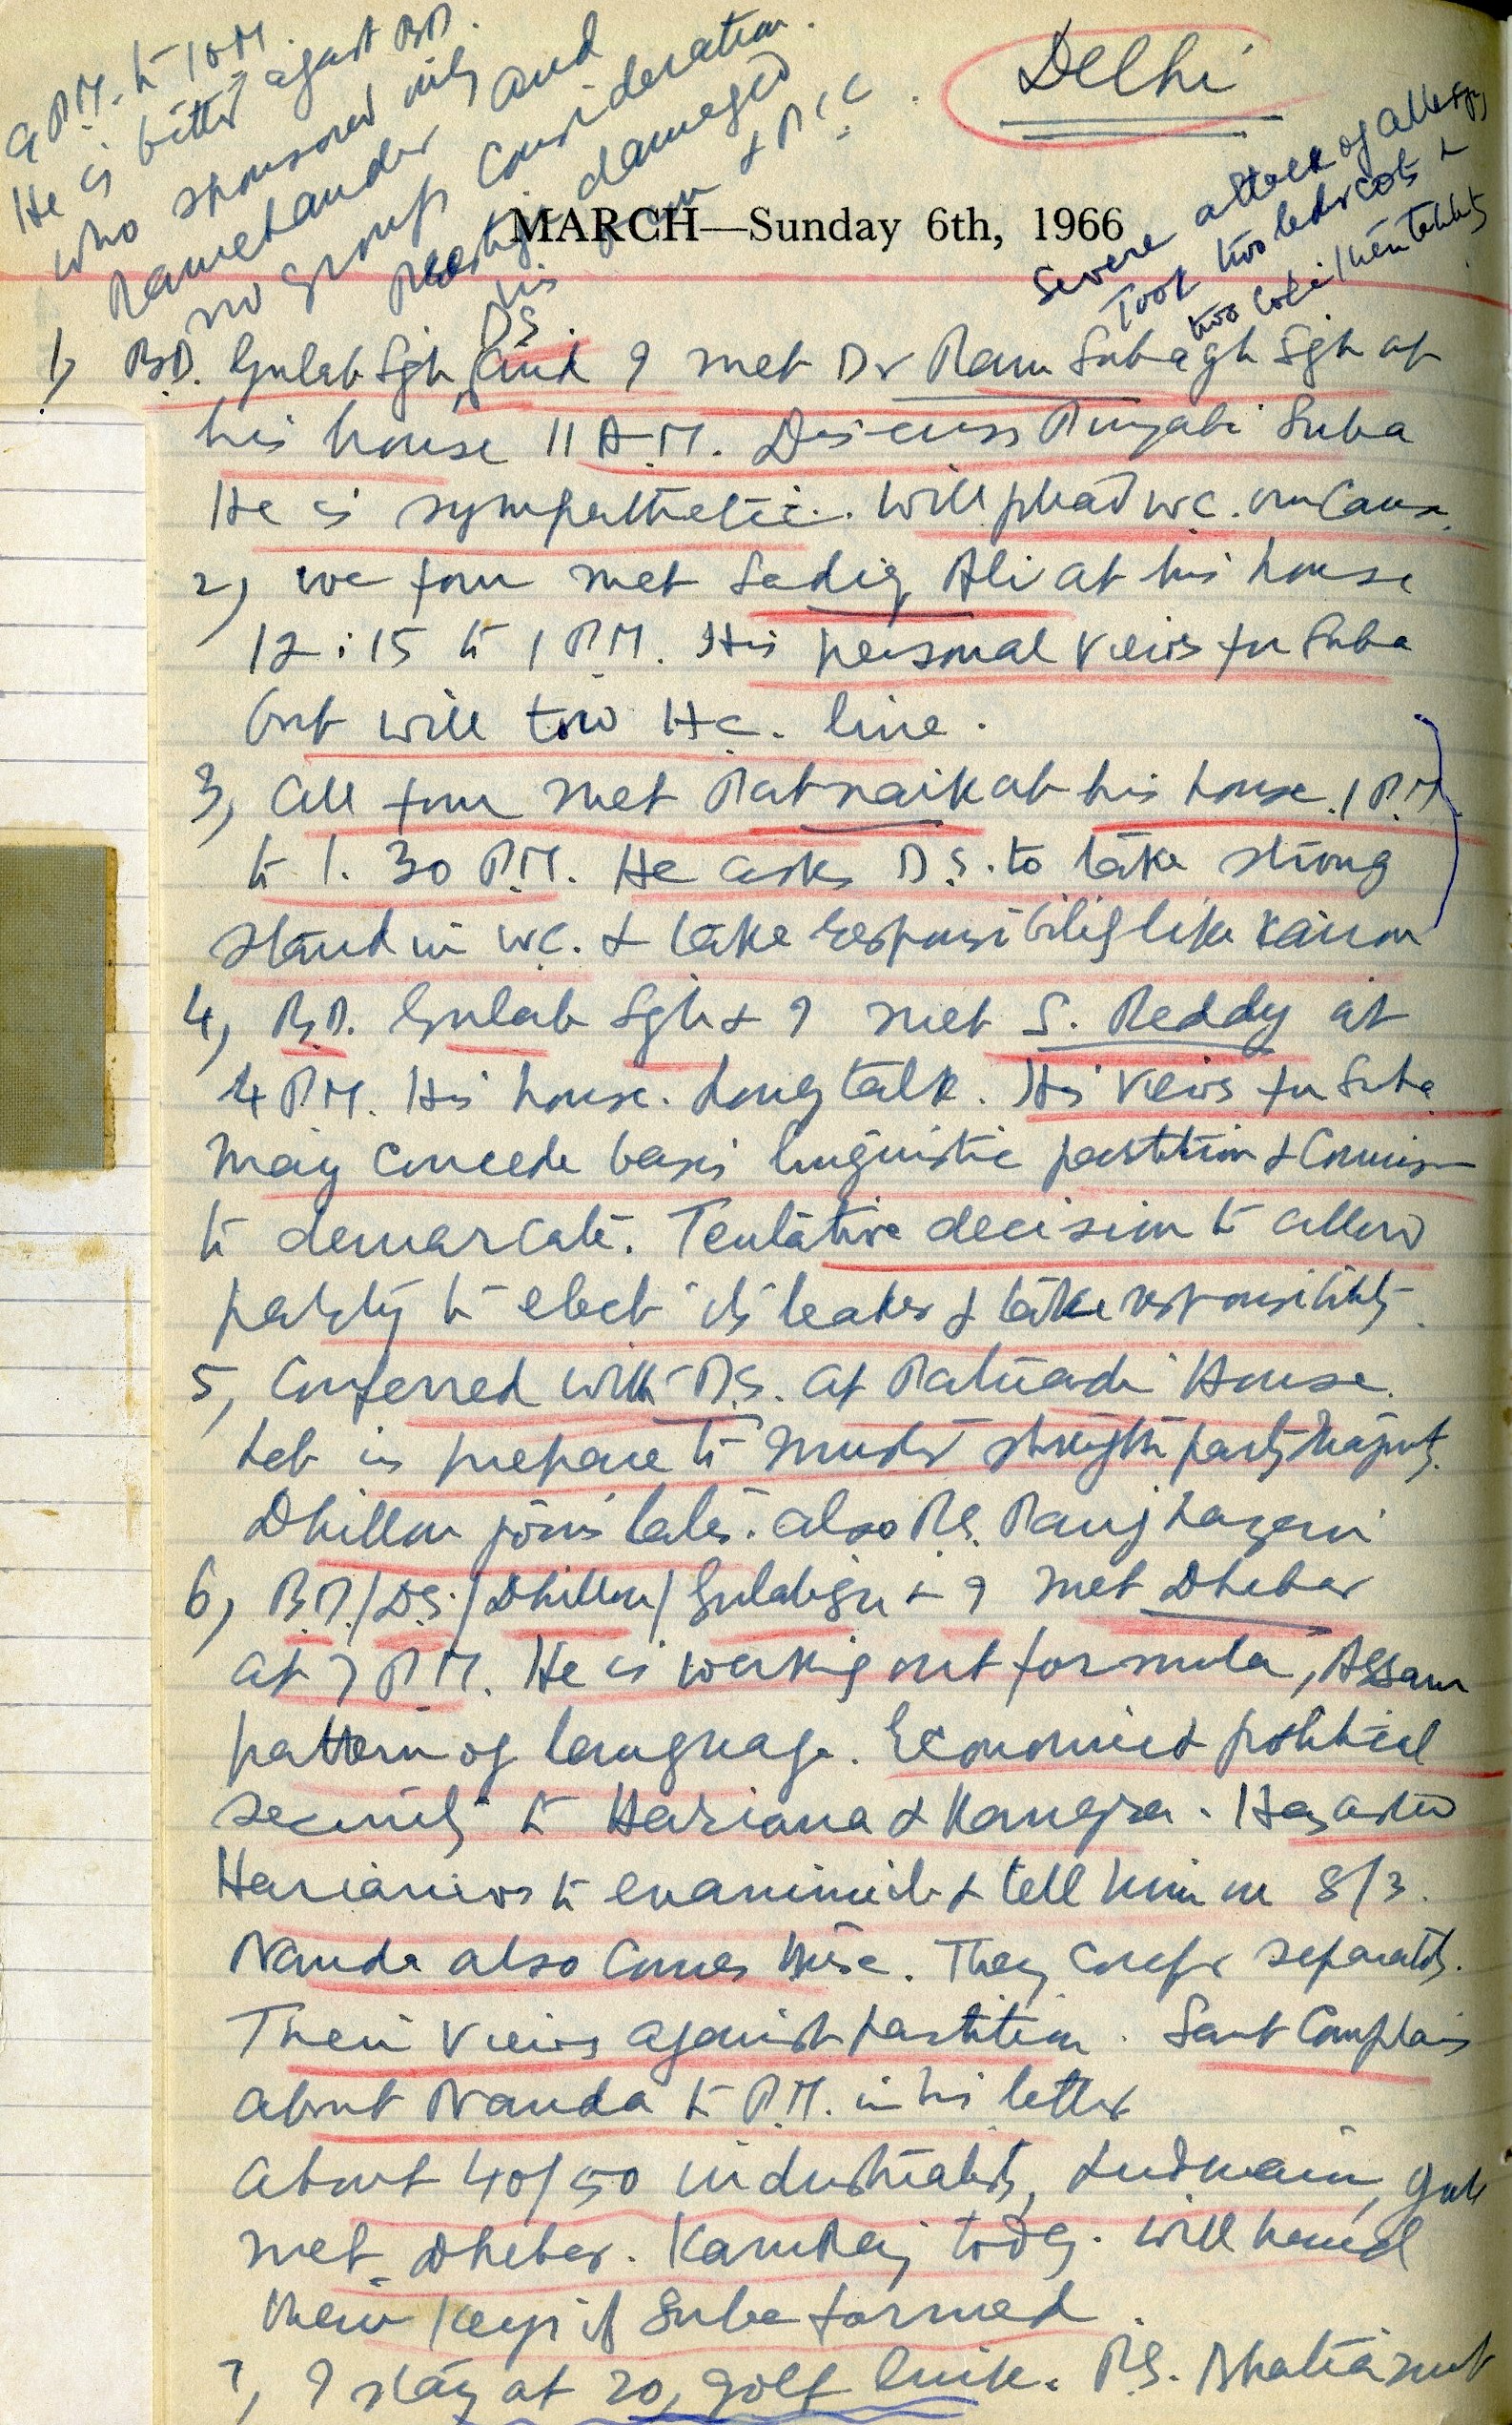 Delhi
MARCH—Sunday 6th, 1966
Severe attack of allergy
Took two
two
1, B.D. Gulab Sgh, DS. and I met Dr Ram Subagh Sgh at
his house 11 A.M. Discuss Punjabi Suba
He is sympathetic. Will plead W.C. our cause.
2, we four met Sadiq Ali at his house
12:15 to 1 P.M. His personal views for Suba
but will tow H.C. line.
3, All four met Patnaik at his house. 1 P.M
to 1.30 P.M. He asks D.S. to take strong
stand in W.C. & take responsibility like Kairon
4, B.D. Gulab Sgh & I met S. Reddy at
4 P.M. His house. Long talk. His views for Suba
may concede basis linguistic partition &
to demarcate. Tentative decision to allow
party to elect its leader & take responsibility.
5, Conferred with D.S. at House.
prepare to muster strength party
Dhillon joins late. also P.S.
6, B.D./D.S./Dhillon/Gulabsgh & I met Dhebar
at 7 P.M. He is working out formula, Assam
pattern of language. Economic & political
security to Hariana & Kangra. Has asked
to examine it & tell him on 8/3.
Nanda also comes there. They confer separately.
Their views against partition. Sant complains
about Nanda to P.M. in his letter
About 40/50 industrialists, Ludhiana,
met Dhebar. KamRaj today. will hand
their keys if Suba formed.
7, I stay at 20, golf link. P.S. Bhatia met
9 P.M. to 10 P.M.
He is bitter against B.D.
who sponsored only
Ramchander and
no group consideration.
prestige damaged
his & P.C.C.